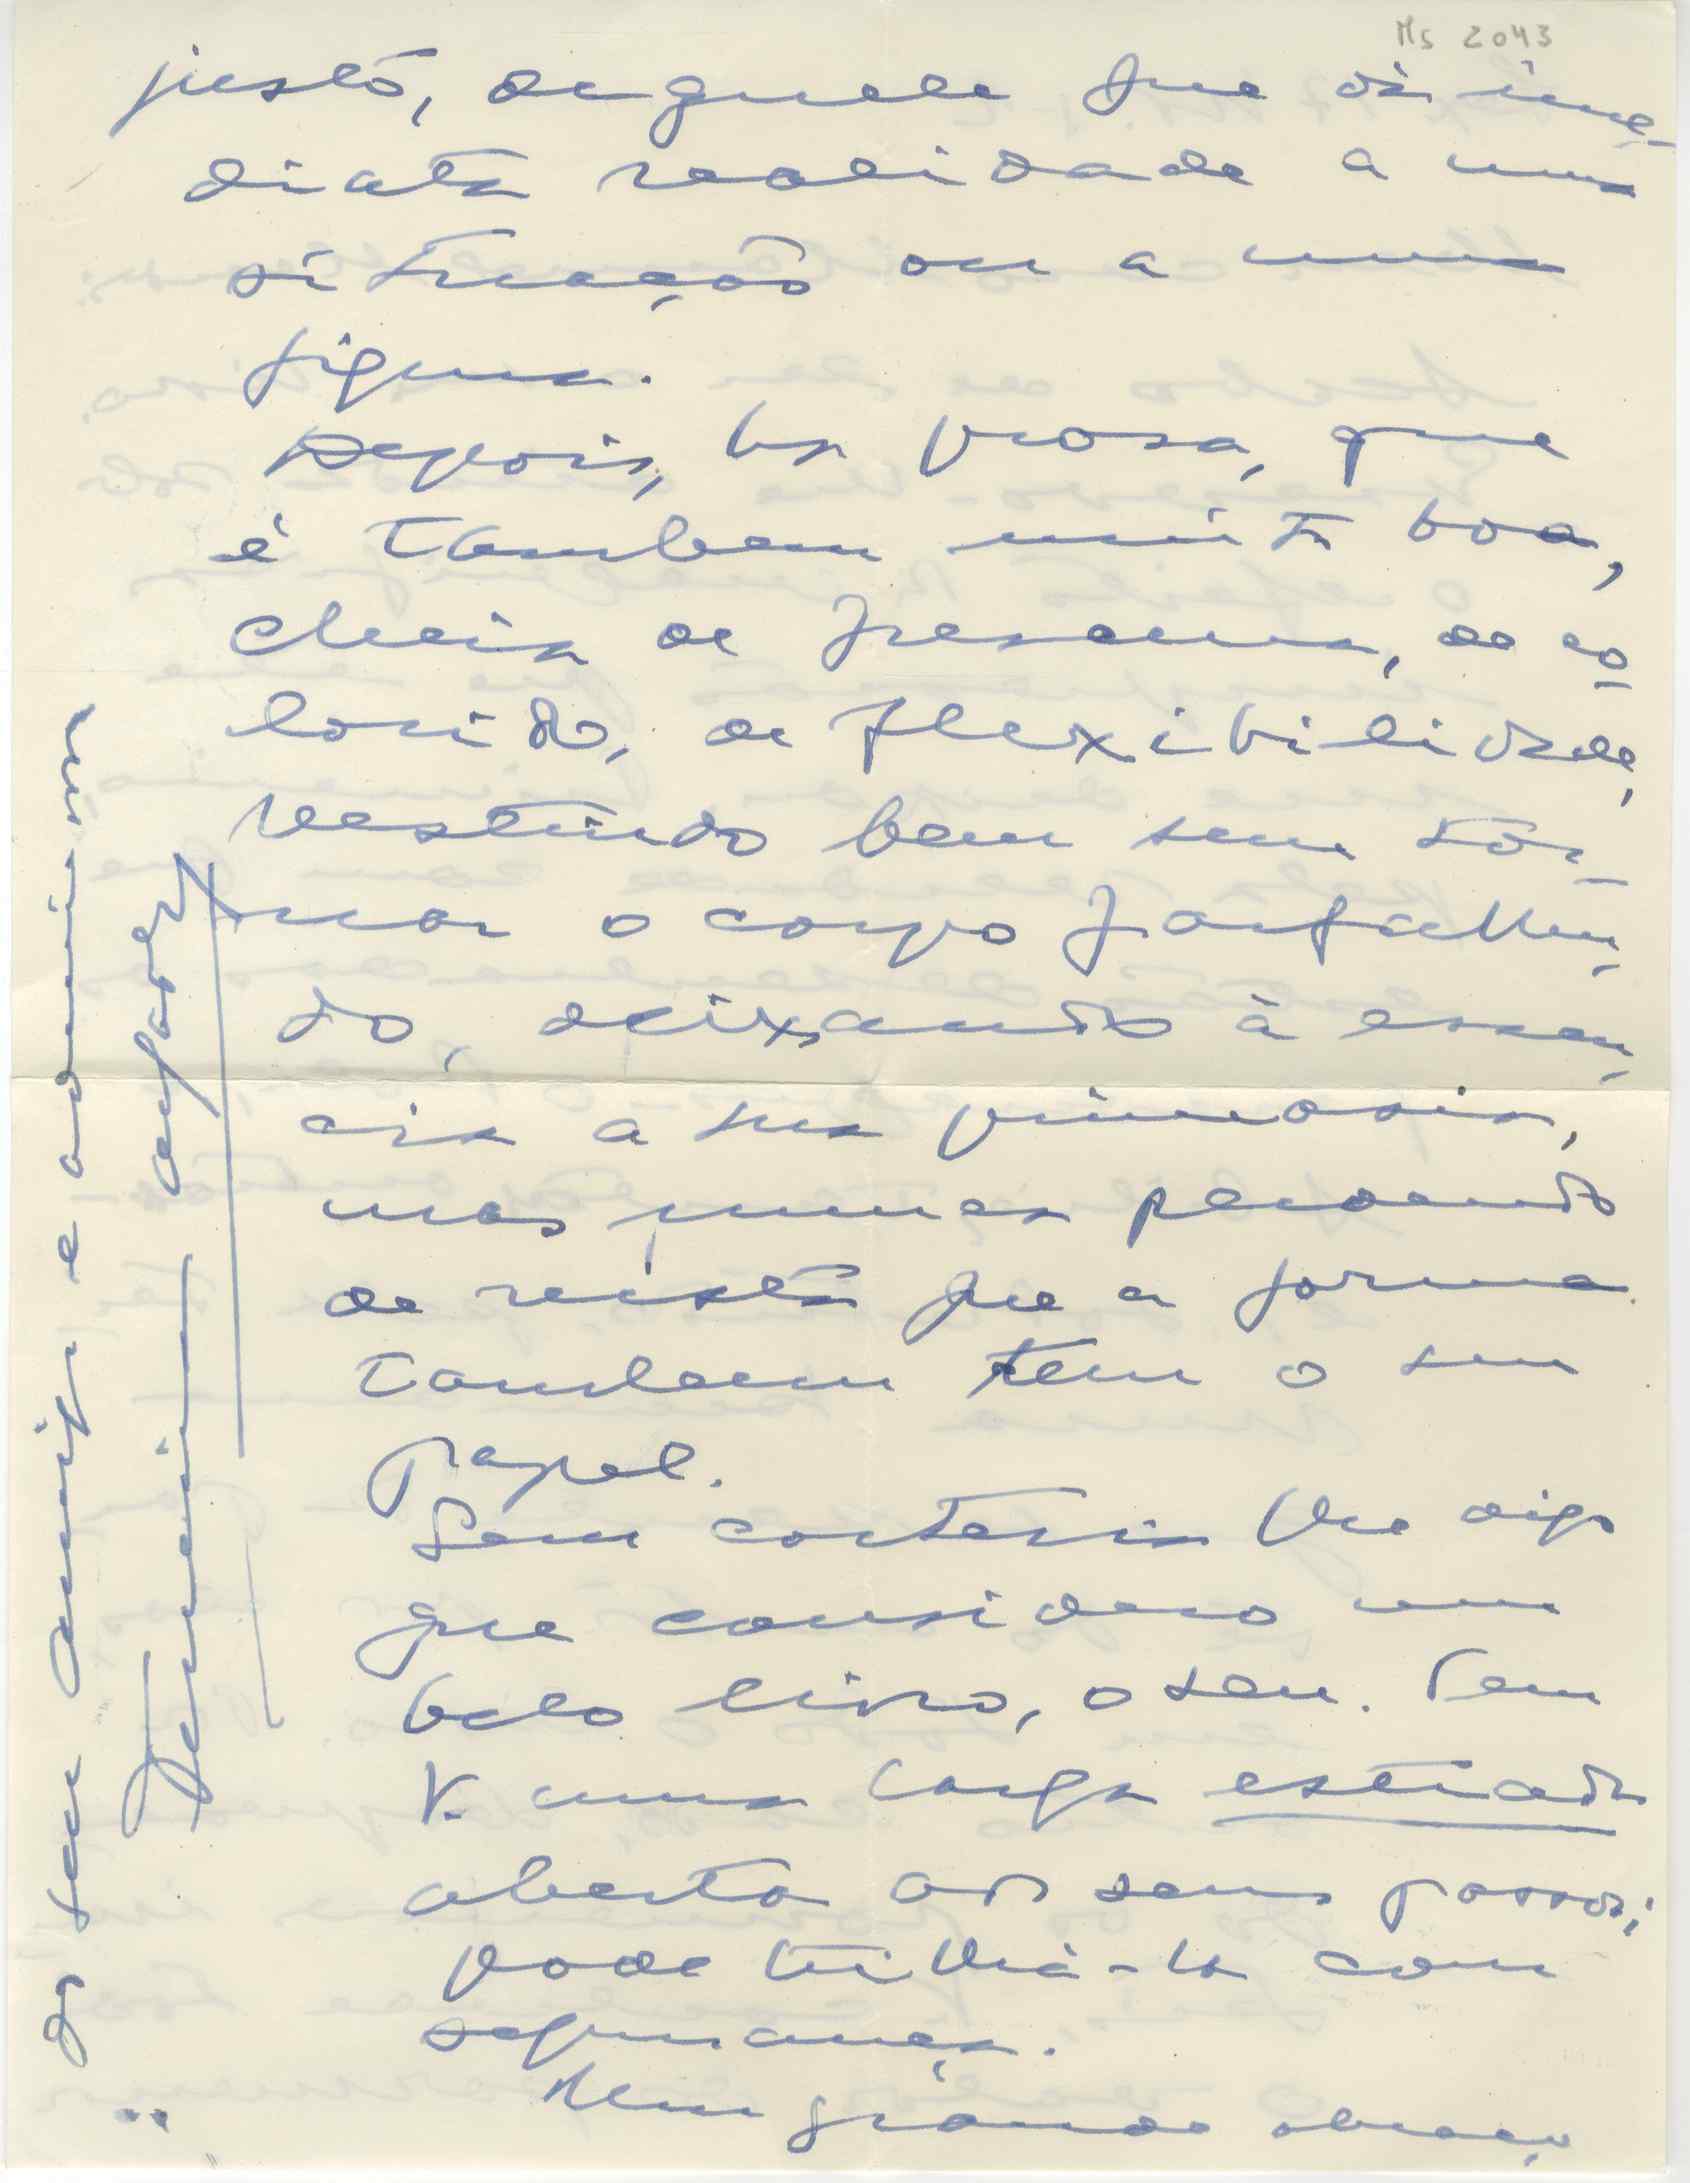 Ms 2043
justo, daquele que dá ime-
diata realidade a uma
situação ou a uma
figura.
Depois, há prosa, que
é tambem muito boa,
cheia de frescura, de co-
lorido, de flexibilidade,
vestindo bem sem tor-
nar o corpo
do, deixando à essen-
cia a sua primasia,
mas nunca perdendo
de vista que a forma
tambem tem o seu
papel.
Sem cortesia lhe digo
que considero um
belo livro, o seu. Tem
V. uma larga estrada
aberta aos seus passos;
pode trilhá-la com
segurança.
Um grande abraço
do seu amigo e admirador